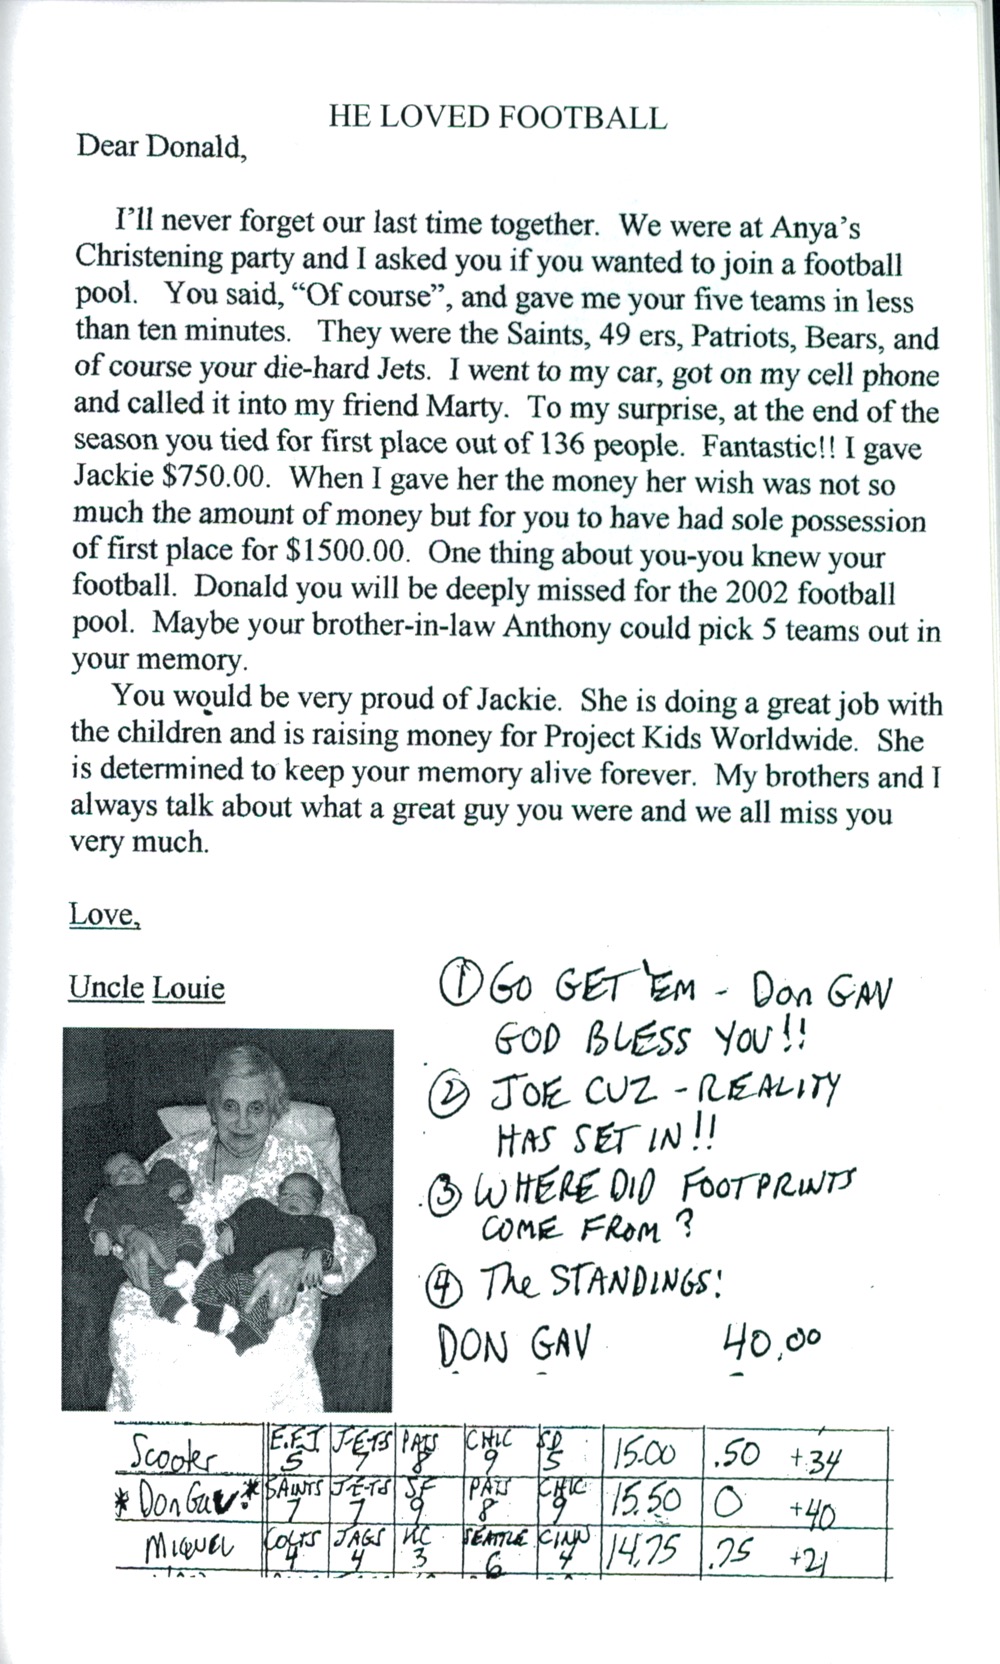 HE LOVED FOOTBALL
Dear Donald,
I'll never forget our last time together. We were at Anya's
Christening party and I asked you if you wanted to join a football
pool. You said, “Of course”, and gave me your five teams in less
than ten minutes. They were the Saints, 49 ers, Patriots, Bears, and
of course your die-hard Jets. I went to my car, got on my cell phone
and called it into my friend Marty. To my surprise, at the end of the
season you tied for first place out of 136 people. Fantastic!! I gave
Jackie $750.00. When I gave her the money her wish was not so
much the amount of money but for you to have had sole possession
of first place for $1500.00. One thing about you-you knew your
football. Donald you will be deeply missed for the 2002 football
pool. Maybe your brother-in-law Anthony could pick 5 teams out in
your memory.
You would be very proud of Jackie. She is doing a great job with
the children and is raising money for Project Kids Worldwide. She
is determined to keep your memory alive forever. My brothers and I
always talk about what a great guy you were and we all miss you
very much.
Love,
Uncle Louie
① GO GET 'EM - Don GAV
GOD BLESS YOU!!
② JOE CUZ - REALITY
HAS SET IN!!
③ WHERE DID FOOTPRINTS
COME FROM?
④ The STANDINGS:
DON GAV 40.00
Scooter 5 JETS 7 PATS 8 CHIC 9 SD 5 15.00 .50 +34
*Don Gav* SAINTS 7 JETS 7 SF 9 PATS 8 CHIC 9 15.50 0 +40
MIQUEL COLTS 4 JAGS 4 KC 3 SEATTLE 6 CINN 4 14.75 .75 +21